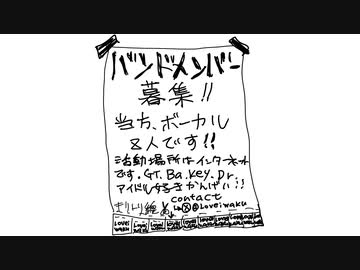 バンドメンバー
募集!!
当方、ボーカル
8人です!!
活動場所はインターネット
です。GT.Ba.Key.Dr.
アイドル好きかんげい!!
contact
きりとり線
@Loveiwaku